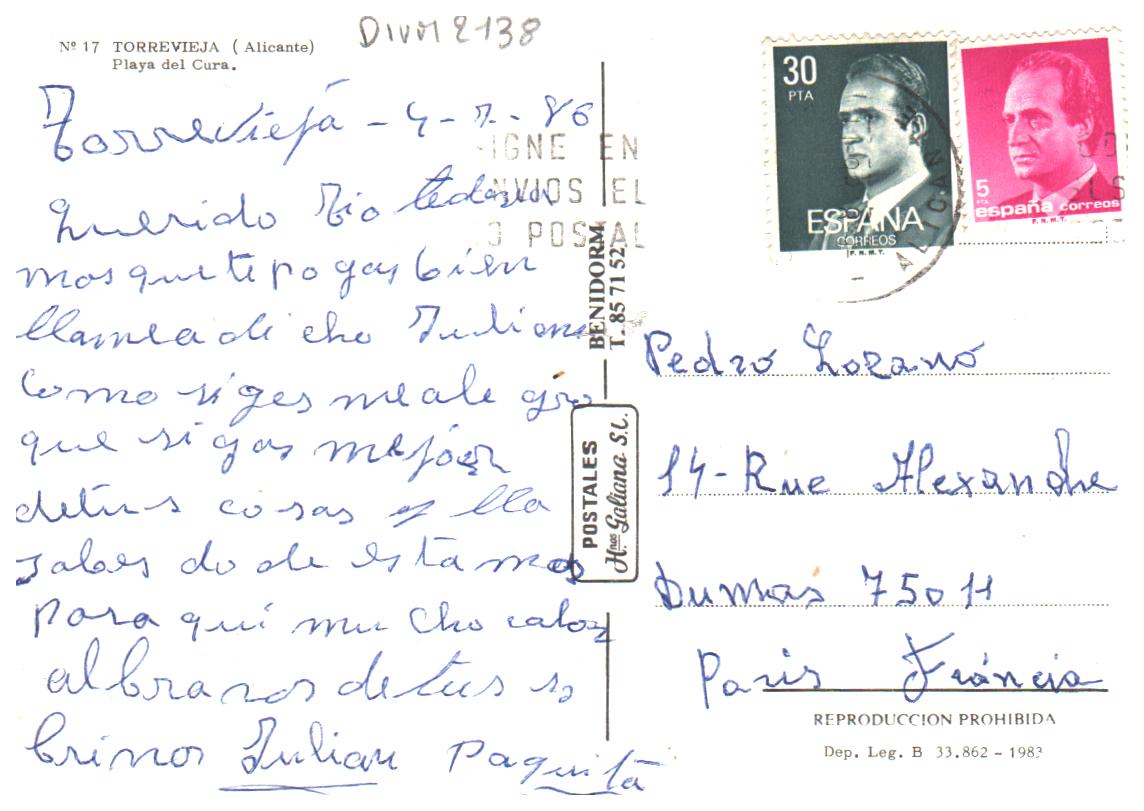 Nº 17 TORREVIEJA ( Alicante)
Playa del Cura.
DIVM 2138
Torrevieja - 4 - 7 - 86
Querido Tio tedesea
mos que tepogas bien
llamea di cho Juliana
como siges meale gro
que sigas mejor
detus cosas y lla
sabes do de estamos
por a quí mucho calor
albrazos detus so
brinos Julian Paquita
SIGNE EN
ENVIOS EL
O POSTAL
BENIDORM
T. 85 71 52
POSTALES
Hnos Galiana S.L.
30
PTA
ESPAÑA
CORREOS
F.N.M.T.
5
PTA
españa correos
F.N.M.T.
ALICAN
Pedro Lozano
14 - Rue Alexandre
Dumas 75011
Paris Fráncia
REPRODUCCION PROHIBIDA
Dep. Leg. B 33.862 - 1983